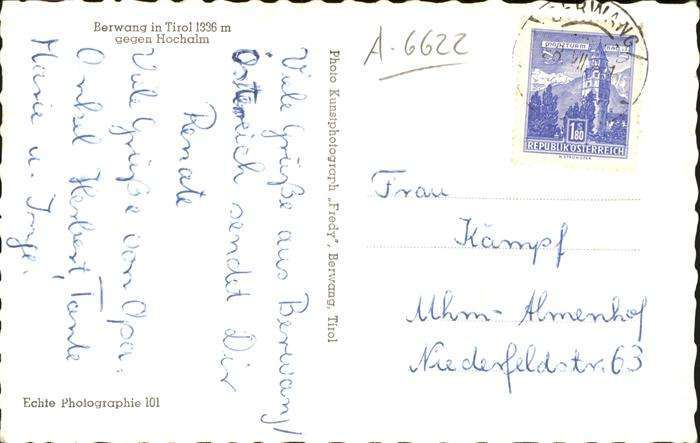 Berwang in Tirol 1336 m
gegen Hochalm
Viele Grüße aus Berwang/
Österreich sendet Dir
Renate
Viele Grüße von Opa,
Onkel Herbert, Tante
Marie u. Inge.
Echte Photographie 101
Photo Kunstphotograph „Fredy", Berwang, Tirol
A-6622
BERWANG
1.80
S
REPUBLIK ÖSTERREICH
Frau
Kämpf
Uhm-Almenhof
Niederfeldstr. 63